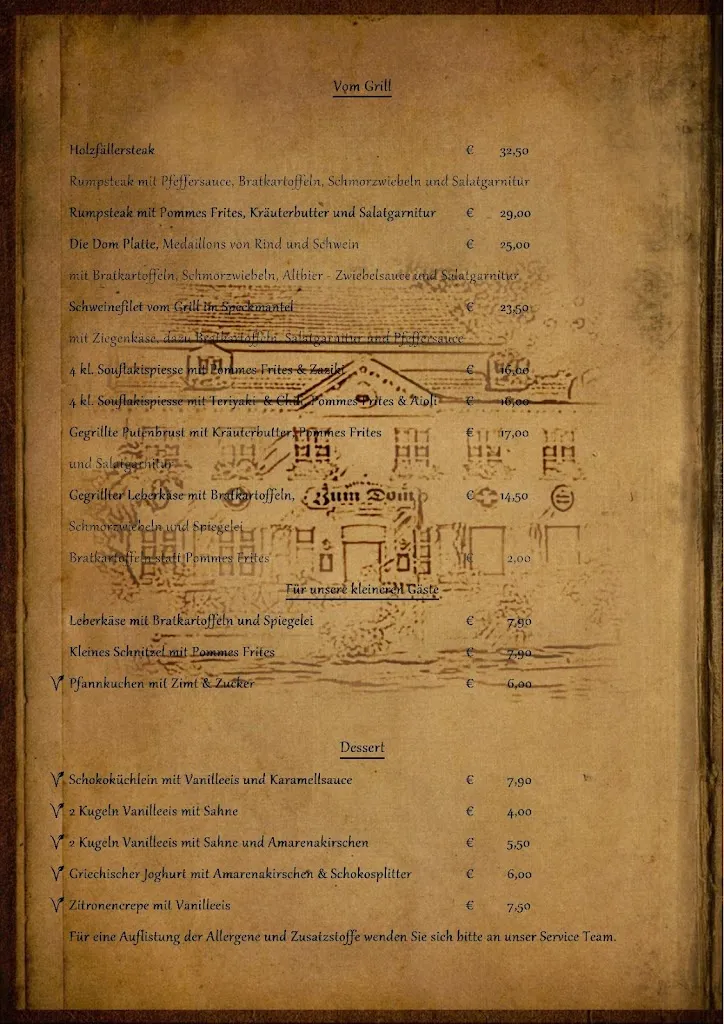 Vom Grill
Holzfällersteak € 32,50
Rumpsteak mit Pfeffersauce, Bratkartoffeln, Schmorzwiebeln und Salatgarnitur
Rumpsteak mit Pommes Frites, Kräuterbutter und Salatgarnitur € 29,00
Die Dom Platte, Medaillons von Rind und Schwein € 25,00
mit Bratkartoffeln, Schmorzwiebeln, Altbier - Zwiebelsauce und Salatgarnitur
Schweinefilet vom Grill im Speckmantel € 23,50
mit Ziegenkäse, dazu Bratkartoffeln, Salatgarnitur und Pfeffersauce
4 kl. Souflakispiesse mit Pommes Frites & Zaziki € 16,00
4 kl. Souflakispiesse mit Teriyaki & Chili, Pommes Frites & Aioli € 16,00
Gegrillte Putenbrust mit Kräuterbutter, Pommes Frites € 17,00
und Salatgarnitur
Gegrillter Leberkäse mit Bratkartoffeln, € 14,50
Zum Dom
Schmorzwiebeln und Spiegelei
Bratkartoffeln statt Pommes Frites € 2,00
Für unsere kleineren Gäste
Leberkäse mit Bratkartoffeln und Spiegelei € 7,90
Kleines Schnitzel mit Pommes Frites € 7,90
V Pfannkuchen mit Zimt & Zucker € 6,00
Dessert
V Schokoküchlein mit Vanilleeis und Karamellsauce € 7,90
V 2 Kugeln Vanilleeis mit Sahne € 4,00
V 2 Kugeln Vanilleeis mit Sahne und Amarenakirschen € 5,50
V Griechischer Joghurt mit Amarenakirschen & Schokosplitter € 6,00
V Zitronencrepe mit Vanilleeis € 7,50
Für eine Auflistung der Allergene und Zusatzstoffe wenden Sie sich bitte an unser Service Team.